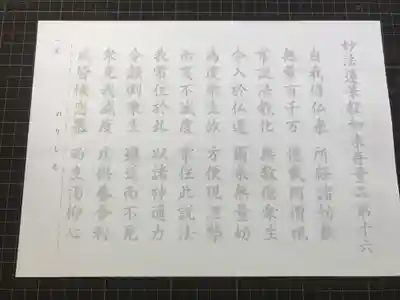 妙法蓮華経如来寿量品第十六
自我得仏来 所経諸劫数
無量百千万 億載阿僧祇
常説法教化 無数億衆生
令入於仏道 爾来無量劫
為度衆生故 方便現涅槃
而実不滅度 常住此説法
我常住於此 以諸神通力
令顛倒衆生 雖近而不死
衆見我滅度 広供養舎利
咸皆懐恋慕 而生渇仰心